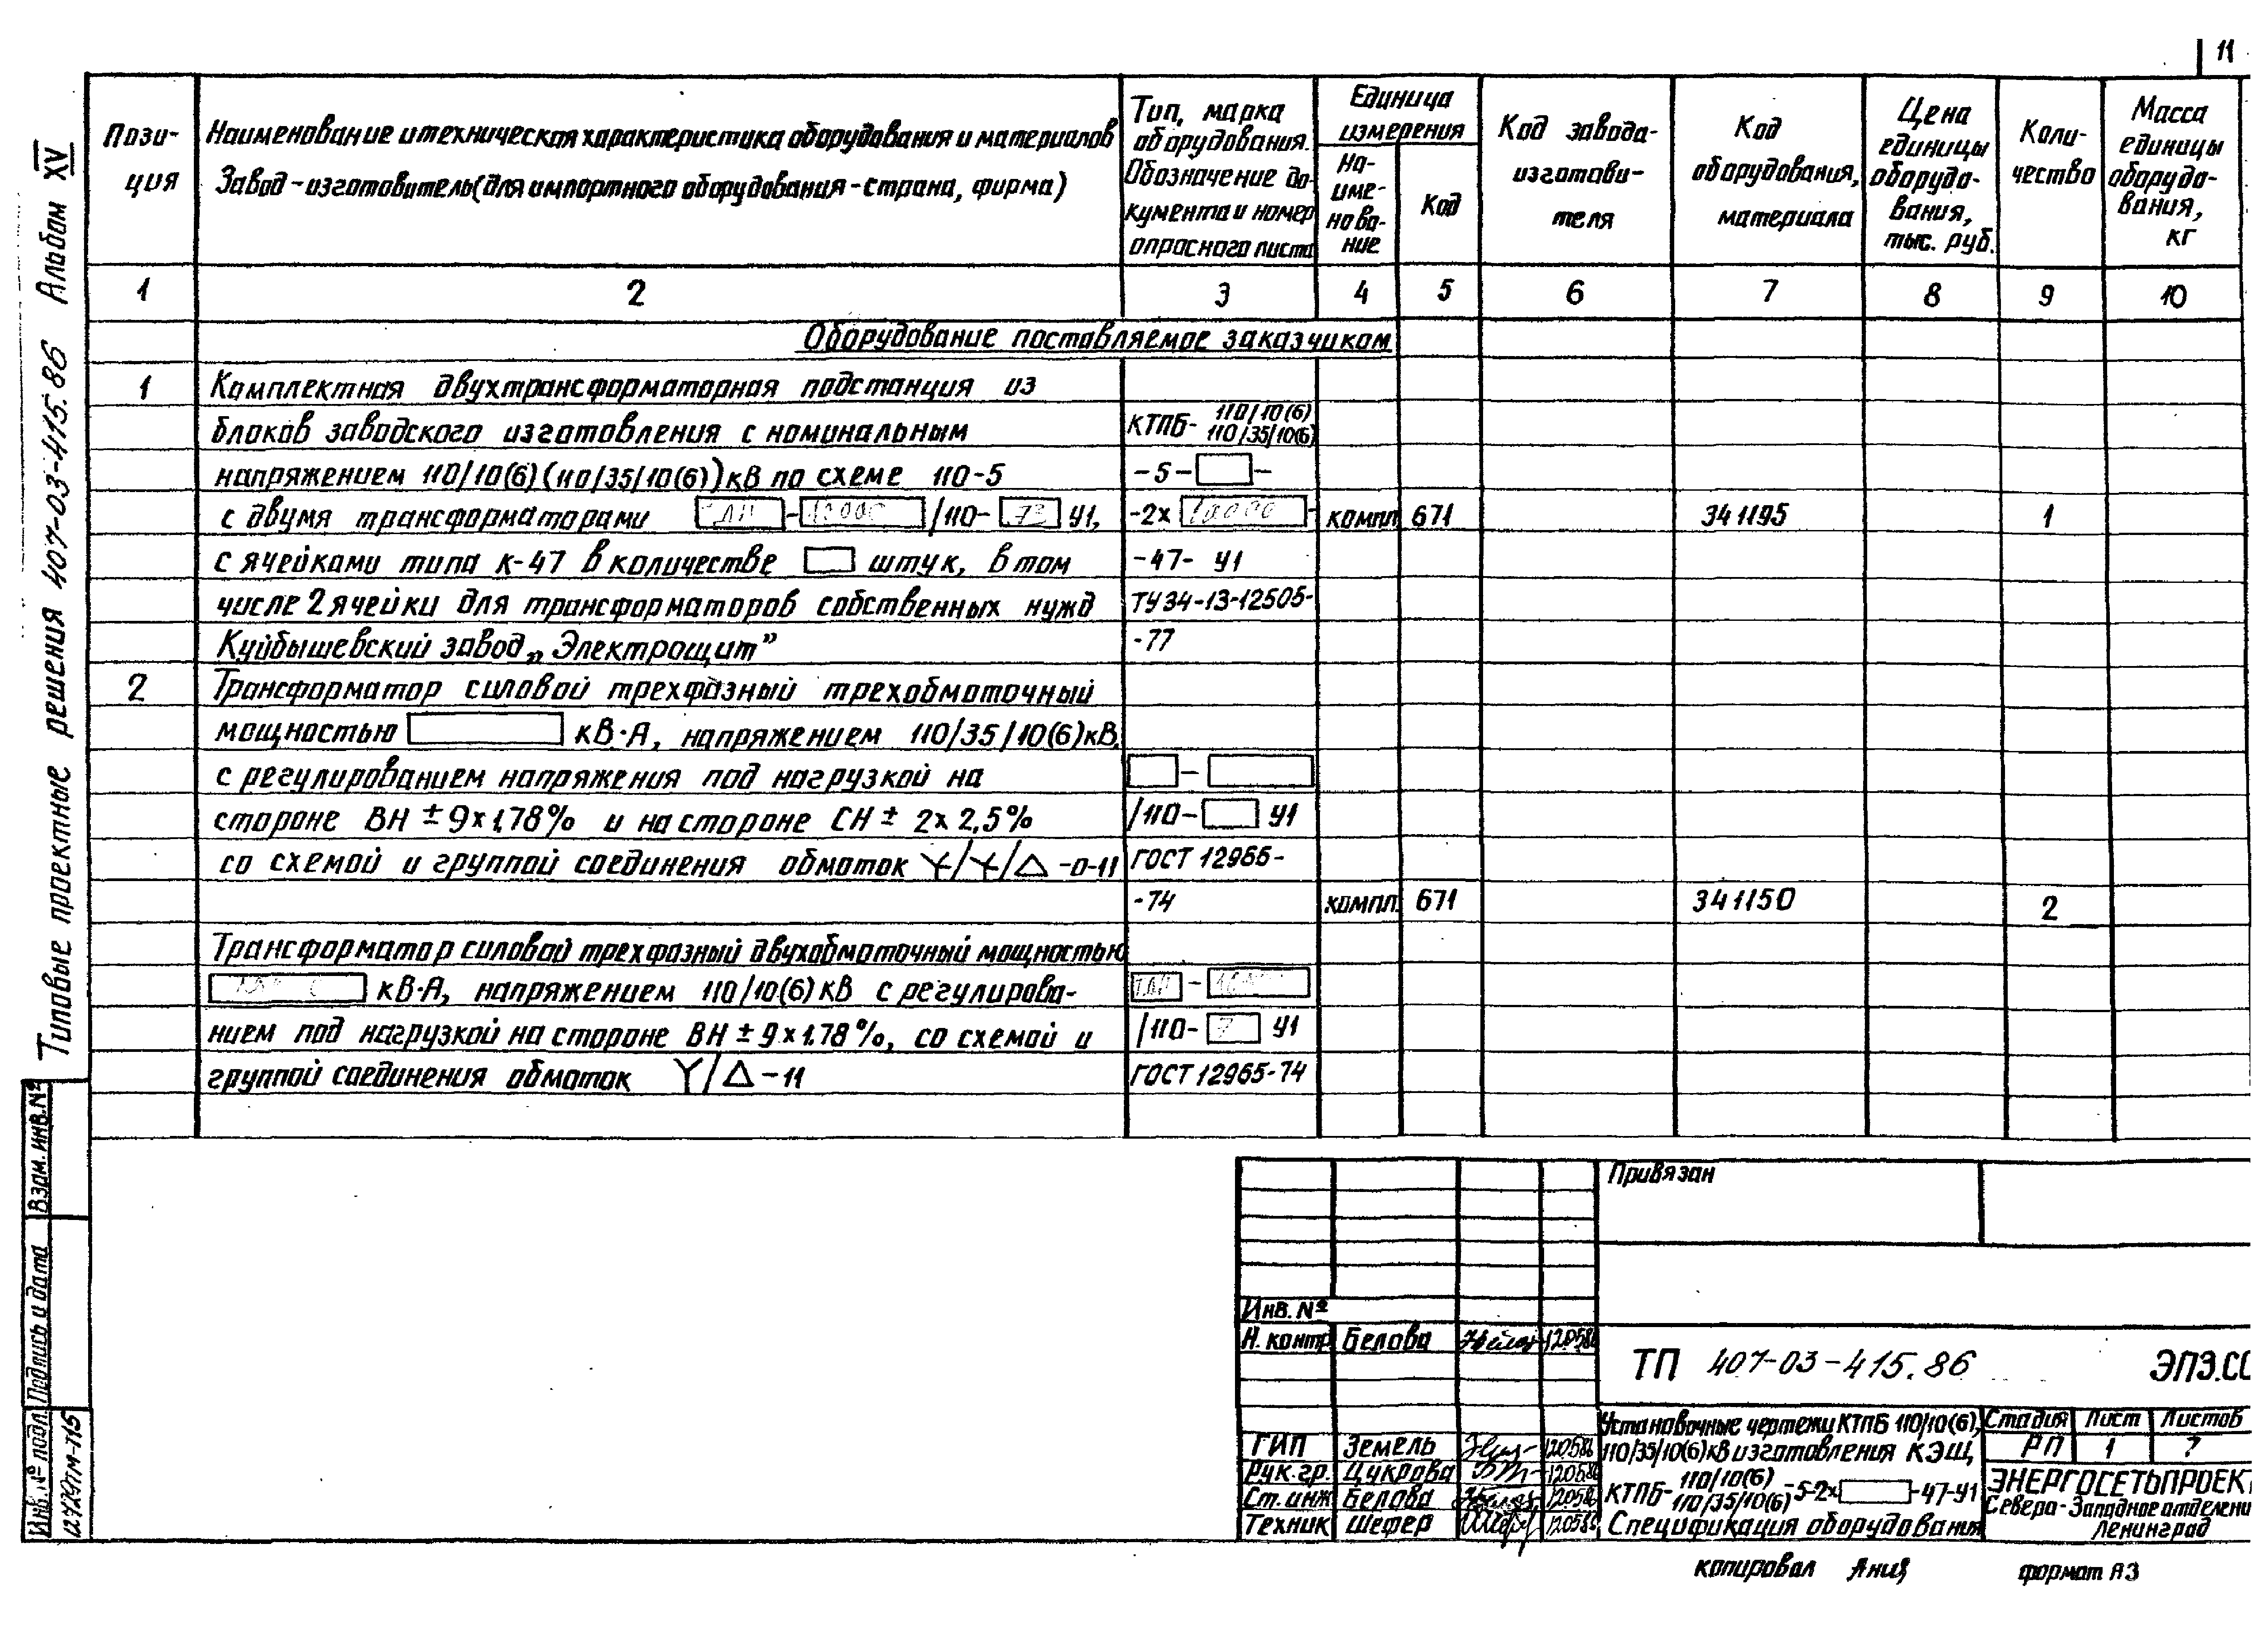 11
Типовые проектные решения 407-03-415.86 Альбом XV
Пози-
ция
Наименование и техническая характеристика оборудования и материалов
Завод-изготовитель (для импортного оборудования - страна, фирма)
Тип, марка
оборудования.
Обозначение до-
кумента и номер
опросного листа
Единица
измерения
На-
име-
нова-
ние
Код
Код завода-
изготови-
теля
Код
оборудования,
материала
Цена
единицы
оборудо-
вания,
тыс. руб.
Коли-
чество
Масса
единицы
оборудо-
вания,
кг
1 2 3 4 5 6 7 8 9 10
Оборудование поставляемое заказчиком
1 Комплектная двухтрансформаторная подстанция из
блоков заводского изготовления с номинальным КТПБ- 110/10(6) 110/35/10(6)
напряжением 110/10(6)(110/35/10(6)) кВ по схеме 110-5 -5- -
с двумя трансформаторами - /110- У1, -2х - компл 671 341195 1
с ячейками типа К-47 в количестве штук, в том -47- У1
числе 2 ячейки для трансформаторов собственных нужд ТУ34-13-12505-
Куйбышевский завод „Электрощит” -77
2 Трансформатор силовой трехфазный трехобмоточный
мощностью кВ·А, напряжением 110/35/10(6)кВ,
с регулированием напряжения под нагрузкой на -
стороне ВН ± 9×1,78% и на стороне СН ± 2×2,5% /110- У1
со схемой и группой соединения обмоток Y/Y/Δ-0-11 ГОСТ 12965-
-74 компл. 671 341150 2
Трансформатор силовой трехфазный двухобмоточный мощностью
кВ·А, напряжением 110/10(6) кВ с регулирова- -
нием под нагрузкой на стороне ВН ± 9×1.78%, со схемой и /110- У1
группой соединения обмоток Y/Δ-11 ГОСТ 12965-74
Взам. инв. №
Подпись и дата
Инв. № подл.
12729тм-т15
Привязан
Инв. №
Н. контр. Белова 12.05.86
ТП 407-03-415.86 ЭПЭ.СО
ГИП Земель 12.05.86
Рук. гр. Цукрова 12.05.86
Ст. инж Белова 12.05.86
Техник Шефер 12.05.86
Установочные чертежи КТПБ 110/10(6),
110/35/10(6) кВ изготовления КЭЩ,
КТПБ- 110/10(6) 110/35/10(6) -5-2х -47-У1
Спецификация оборудования
Стадия Лист Листов
РП 1 7
ЭНЕРГОСЕТЬПРОЕКТ
Северо-Западное отделени
Ленинград
копировал
формат А3